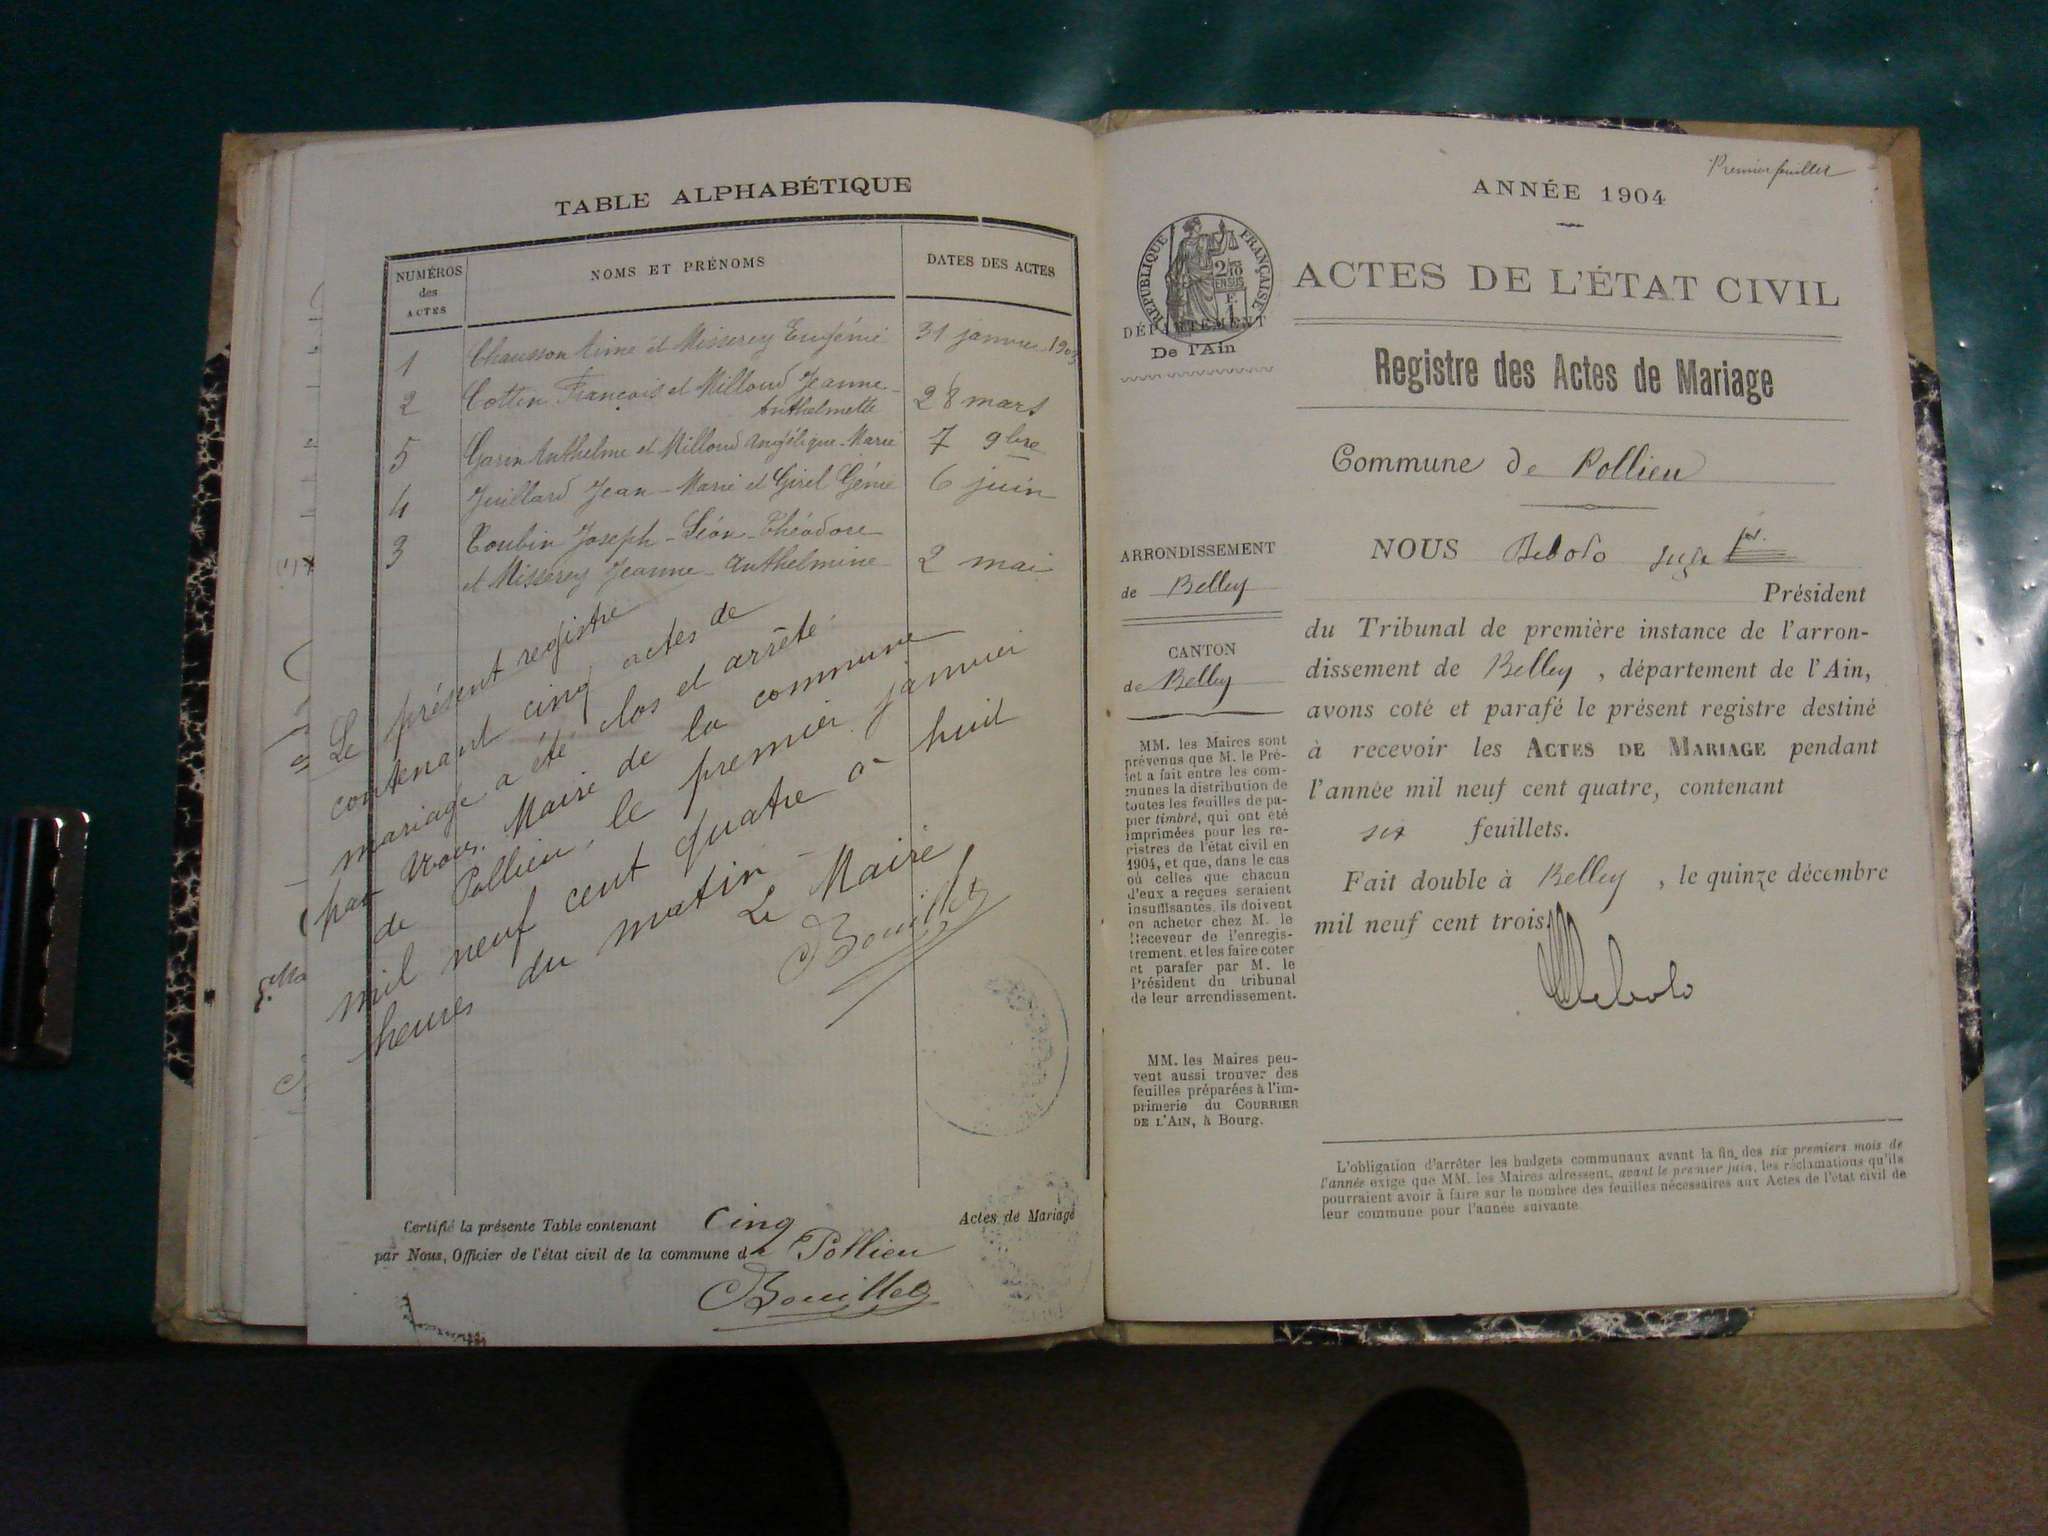 TABLE ALPHABÉTIQUE
NUMÉROS
des
ACTES
NOMS ET PRÉNOMS
DATES DES ACTES
1 Chausson Aimé et Misserey Eugénie 31 janvier 1903
2 Cottin François et Milloud Jeanne-
Anthelmette 28 mars
5 Garin Anthelme et Milloud Angélique-Marie 7 9bre
4 Juillard Jean-Marie et Girel Génie 6 juin
3 Toubin Joseph-Léon-Théodore
et Misserey Jeanne-Anthelmine 2 mai
Le présent registre
contenant cinq actes de
mariage a été clos et arrêté
par nous, Maire de la commune
de Pollieu, le premier janvier
mil neuf cent quatre à huit
heures du matin -
Le Maire,
Bouillet
Certifié la présente Table contenant Cinq Actes de Mariage
par Nous, Officier de l'état civil de la commune de Pollieu
Bouillet
Premier feuillet
ANNÉE 1904
RÉPUBLIQUE FRANÇAISE
2/10
EN SUS
DÉPARTEMENT
De l'Ain
ACTES DE L'ÉTAT CIVIL
Registre des Actes de Mariage
Commune de Pollieu
ARRONDISSEMENT
de Belley
CANTON
de Belley
MM. les Maires sont
prévenus que M. le Pré-
fet a fait entre les com-
munes la distribution de
toutes les feuilles de pa-
pier timbré, qui ont été
imprimées pour les re-
gistres de l'état civil en
1904, et que, dans le cas
où celles que chacun
d'eux a reçues seraient
insuffisantes, ils doivent
en acheter chez M. le
Receveur de l'enregis-
trement, et les faire coter
et parafer par M. le
Président du tribunal
de leur arrondissement.
MM. les Maires peu-
vent aussi trouver des
feuilles préparées à l'im-
primerie du COURRIER
DE L'AIN, à Bourg.
NOUS Bebolo juge
Président
du Tribunal de première instance de l'arron-
dissement de Belley, département de l'Ain,
avons coté et parafé le présent registre destiné
à recevoir les ACTES DE MARIAGE pendant
l'année mil neuf cent quatre, contenant
six feuillets.
Fait double à Belley, le quinze décembre
mil neuf cent trois.
L'obligation d'arrêter les budgets communaux avant la fin des six premiers mois de
l'année exige que MM. les Maires adressent, avant le premier juin, les réclamations qu'ils
pourraient avoir à faire sur le nombre des feuilles nécessaires aux Actes de l'état civil de
leur commune pour l'année suivante